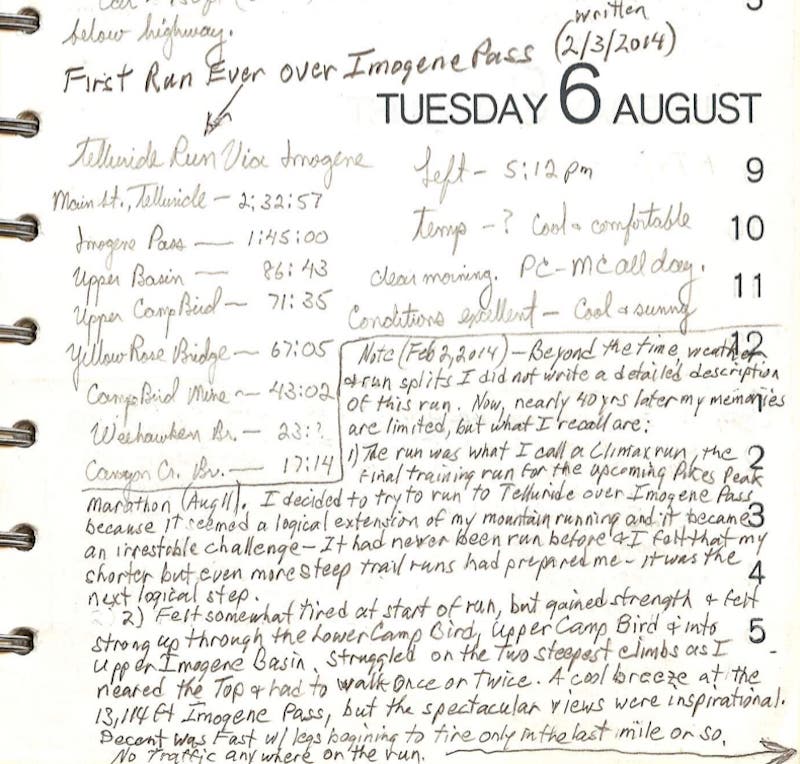 below highway.
written
(2/3/2014)
First Run Ever over Imogene Pass
TUESDAY 6 AUGUST
Telluride Run Via Imogene
Main St., Telluride - 2:32:57
Imogene Pass - 1:45:00
Upper Basin - 86:43
Upper Camp Bird - 71:35
Yellow Rose Bridge - 67:05
Camp Bird Mine - 43:02
Weehawken Br. - 23:?
Canyon Cr. Br. - 17:14
Left - 5:12 pm
9
temp - ? Cool & comfortable
10
clear morning. PC-MC all day.
11
Conditions excellent - Cool & sunny
12
Note (Feb 2, 2014) - Beyond the time, weather
& run splits I did not write a detailed description
1
of this run. Now, nearly 40 yrs later my memories
are limited, but what I recall are:
2
1) The run was what I call a Climax run, the
final training run for the upcoming Pikes Peak
Marathon (Aug 11). I decided to try to run to Telluride over Imogene Pass
3
because it seemed a logical extension of my mountain running and it became
an irrestable challenge - It had never been run before & I felt that my
4
shorter but even more steep trail runs had prepared me - it was the
next logical step.
2) Felt somewhat tired at start of run, but gained strength & felt
5
strong up through the Lower Camp Bird, Upper Camp Bird & into
Upper Imogene Basin. Struggled on the two steepest climbs as I
neared the Top & had to walk once or twice. A cool breeze at the
13,114 ft Imogene Pass, but the spectacular views were inspirational.
Decent was Fast w/ legs bagining to tire only in the last mile or so.
No Traffic anywhere on the run.